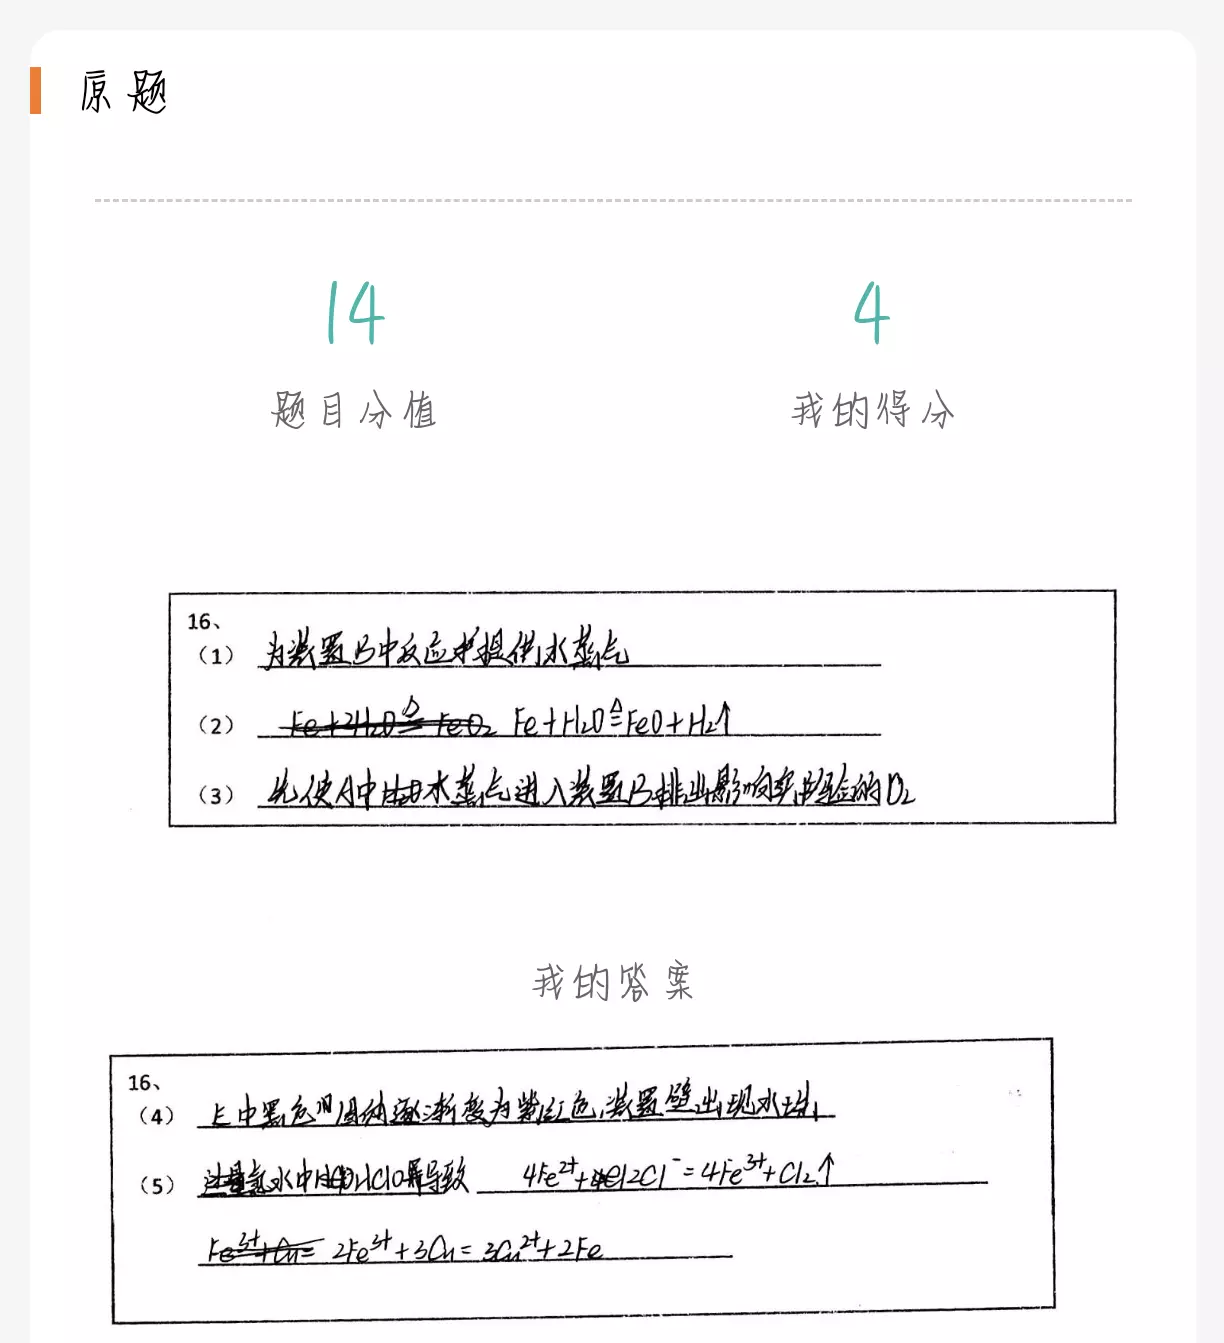 原题
14 4
题目分值 我的得分
16、
(1) 为装置B中反应提供水蒸气
(2) Fe+2H₂O≜FeO₂ Fe+H₂O≜FeO+H₂↑
(3) 先使A中水蒸气进入装置B排出影响实验的O₂
我的答案
16、
(4) E中黑色固体逐渐变为紫红色,装置壁出现水珠
(5) 过量氯水中HClO导致 4Fe²⁺+Cl2Cl⁻=4Fe³⁺+Cl₂↑
Fe³⁺+Cu= 2Fe³⁺+3Cu=3Cu²⁺+2Fe